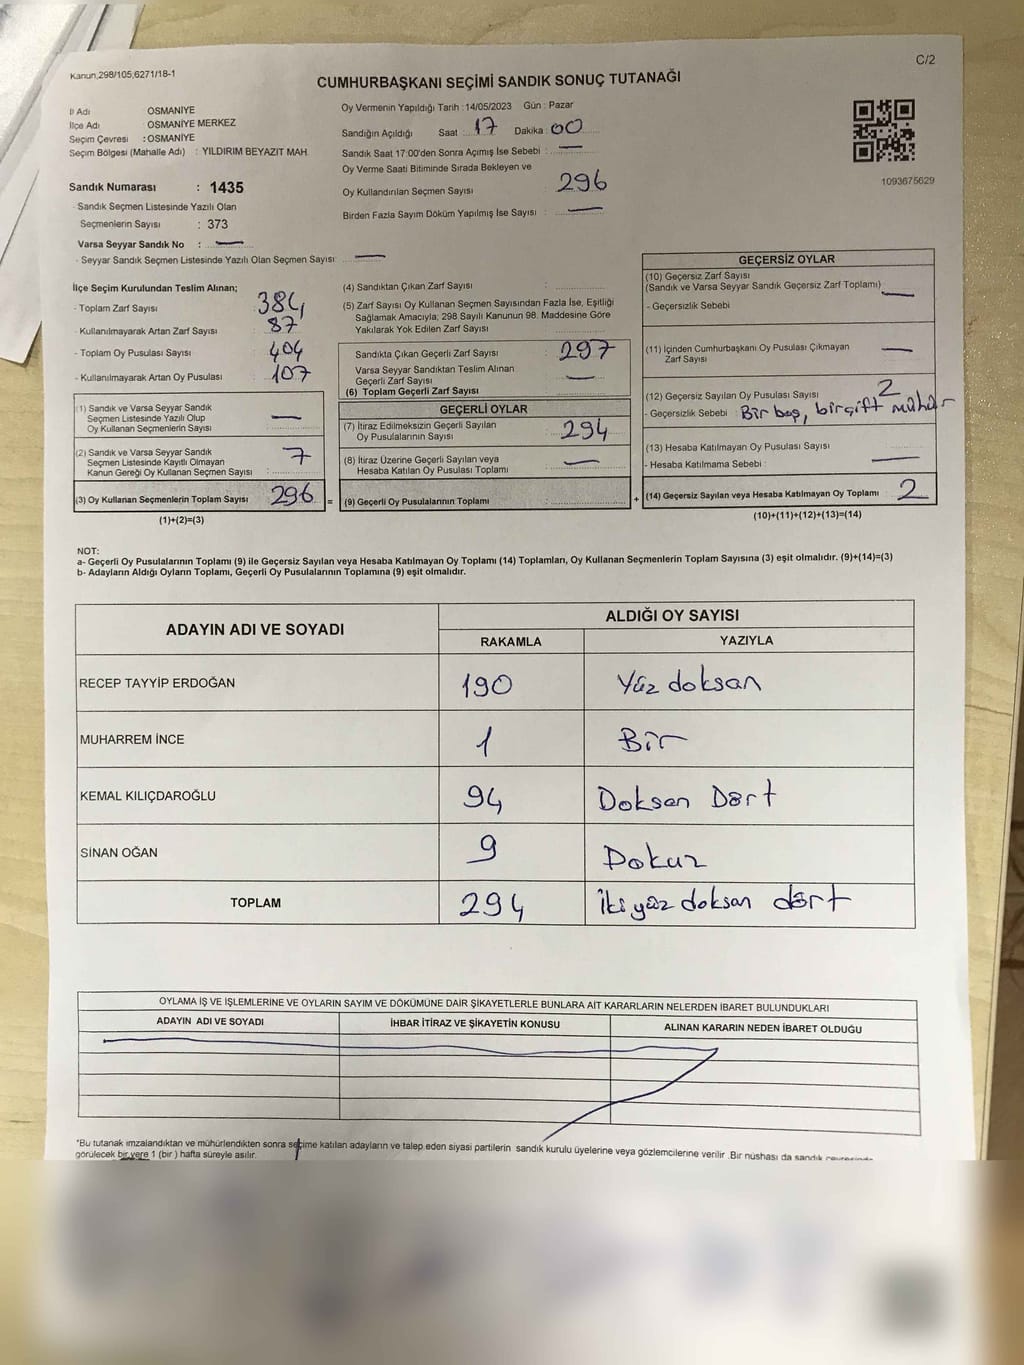 Kanun,298/105,6271/18-1
C/2
CUMHURBAŞKANI SEÇİMİ SANDIK SONUÇ TUTANAĞI
İl Adı OSMANİYE
İlçe Adı OSMANİYE MERKEZ
Seçim Çevresi : OSMANİYE
Seçim Bölgesi (Mahalle Adı) : YILDIRIM BEYAZIT MAH.
Sandık Numarası : 1435
- Sandık Seçmen Listesinde Yazılı Olan
Seçmenlerin Sayısı : 373
Varsa Seyyar Sandık No : —
- Seyyar Sandık Seçmen Listesinde Yazılı Olan Seçmen Sayısı: —
Oy Vermenin Yapıldığı Tarih :14/05/2023 Gün : Pazar
Sandığın Açıldığı Saat : 17 Dakika : 00
Sandık Saat 17:00'den Sonra Açımış İse Sebebi : —
Oy Verme Saati Bitiminde Sırada Bekleyen ve
Oy Kullandırılan Seçmen Sayısı 296
Birden Fazla Sayım Döküm Yapılmış İse Sayısı : —
1093675629
İlçe Seçim Kurulundan Teslim Alınan;
- Toplam Zarf Sayısı 384
- Kullanılmayarak Artan Zarf Sayısı 87
- Toplam Oy Pusulası Sayısı 404
- Kullanılmayarak Artan Oy Pusulası 107
(1) Sandık ve Varsa Seyyar Sandık
Seçmen Listesinde Yazılı Olup
Oy Kullanan Seçmenlerin Sayısı —
(2) Sandık ve Varsa Seyyar Sandık
Seçmen Listesinde Kayıtlı Olmayan
Kanun Gereği Oy Kullanan Seçmen Sayısı : 7
(3) Oy Kullanan Seçmenlerin Toplam Sayısı 296 =
(1)+(2)=(3)
(4) Sandıktan Çıkan Zarf Sayısı :
(5) Zarf Sayısı Oy Kullanan Seçmen Sayısından Fazla İse, Eşitliği
Sağlamak Amacıyla; 298 Sayılı Kanunun 98. Maddesine Göre
Yakılarak Yok Edilen Zarf Sayısı :
Sandıkta Çıkan Geçerli Zarf Sayısı : 297
Varsa Seyyar Sandıktan Teslim Alınan
Geçerli Zarf Sayısı —
(6) Toplam Geçerli Zarf Sayısı
GEÇERLİ OYLAR
(7) İtiraz Edilmeksizin Geçerli Sayılan
Oy Pusulalarının Sayısı 294
(8) İtiraz Üzerine Geçerli Sayılan veya
Hesaba Katılan Oy Pusulası Toplamı —
(9) Geçerli Oy Pusulalarının Toplamı +
GEÇERSİZ OYLAR
(10) Geçersiz Zarf Sayısı
(Sandık ve Varsa Seyyar Sandık Geçersiz Zarf Toplamı) —
- Geçersizlik Sebebi
(11) İçinden Cumhurbaşkanı Oy Pusulası Çıkmayan
Zarf Sayısı —
(12) Geçersiz Sayılan Oy Pusulası Sayısı 2
- Geçersizlik Sebebi : Bir boş, bir çift mühür
(13) Hesaba Katılmayan Oy Pusulası Sayısı
- Hesaba Katılmama Sebebi : —
(14) Geçersiz Sayılan veya Hesaba Katılmayan Oy Toplamı 2
(10)+(11)+(12)+(13)=(14)
NOT:
a- Geçerli Oy Pusulalarının Toplamı (9) ile Geçersiz Sayılan veya Hesaba Katılmayan Oy Toplamı (14) Toplamları, Oy Kullanan Seçmenlerin Toplam Sayısına (3) eşit olmalıdır. (9)+(14)=(3)
b- Adayların Aldığı Oyların Toplamı, Geçerli Oy Pusulalarının Toplamına (9) eşit olmalıdır.
ADAYIN ADI VE SOYADI ALDIĞI OY SAYISI
RAKAMLA YAZIYLA
RECEP TAYYİP ERDOĞAN 190 Yüz doksan
MUHARREM İNCE 1 Bir
KEMAL KILIÇDAROĞLU 94 Doksan Dört
SİNAN OĞAN 9 Dokuz
TOPLAM 294 İki yüz doksan dört
OYLAMA İŞ VE İŞLEMLERİNE VE OYLARIN SAYIM VE DÖKÜMÜNE DAİR ŞİKAYETLERLE BUNLARA AİT KARARLARIN NELERDEN İBARET BULUNDUKLARI
ADAYIN ADI VE SOYADI İHBAR İTİRAZ VE ŞİKAYETİN KONUSU ALINAN KARARIN NEDEN İBARET OLDUĞU
*Bu tutanak imzalandıktan ve mühürlendikten sonra seçime katılan adayların ve talep eden siyasi partilerin sandık kurulu üyelerine veya gözlemcilerine verilir .Bir nüshası da sandık çevresinde
görülecek bir yere 1 (bir ) hafta süreyle asılır.